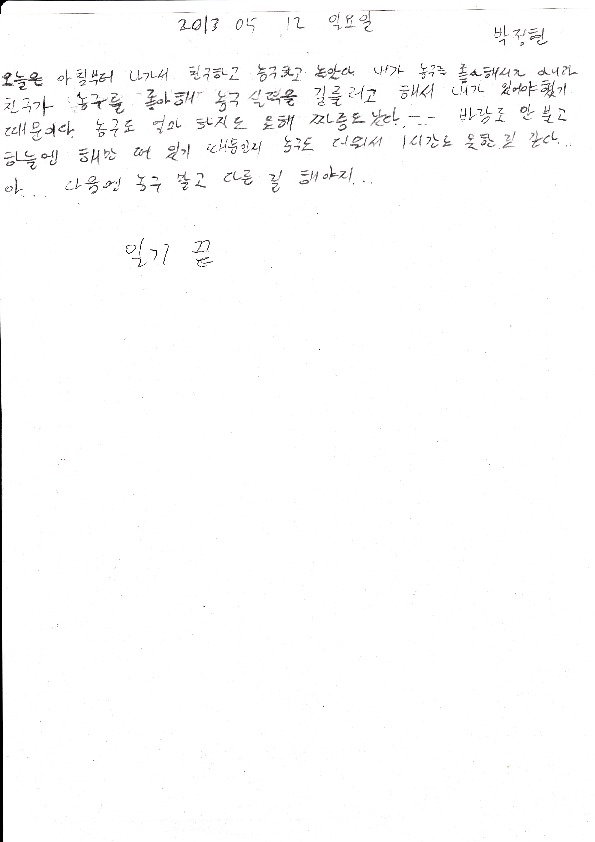 2013 05 12 일요일
박정현
오늘은 아침부터 나가서 친구하고 농구하고 놀았다 내가 농구를 좋아해서가 아니라
친구가 농구를 좋아해 농구 실력을 길를려고 해서 내가 있어야 했기
때문이다. 농구도 얼마 하지도 못해 짜증도 났다.-.- 바람도 안 불고
하늘엔 해만 떠 있기 때문인지 농구도 더워서 1시간도 못한 것 같다...
아... 다음엔 농구 말고 다른 걸 해야지...
일기 끝